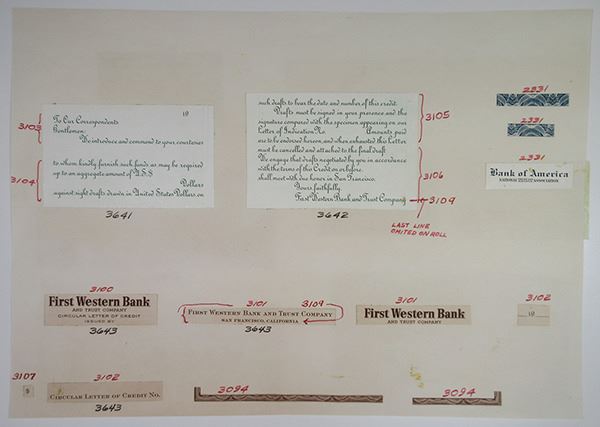 19
To Our Correspondents
Gentlemen:
We introduce and commend to your courtesies
to whom kindly furnish such funds as may be required
up to an aggregate amount of U.S.$
Dollars
against sight drafts drawn in United States Dollars, on
3103
3104
3641
such drafts to bear the date and number of this credit.
Drafts must be signed in your presence and the
signature compared with the specimen appearing on our
Letter of Indication No. Amounts paid
are to be endorsed hereon, and when exhausted this Letter
must be cancelled and attached to the final draft.
We engage that drafts negotiated by you in accordance
with the terms of this Credit on or before
shall meet with due honor in San Francisco.
Yours faithfully,
First Western Bank and Trust Company
3105
3106
3109
3642
LAST LINE
OMITED ON ROLL
2331
2331
Bank of America
NATIONAL TRUST AND SAVINGS ASSOCIATION
3100
First Western Bank
AND TRUST COMPANY
CIRCULAR LETTER OF CREDIT
ISSUED BY
3643
3101 3109
FIRST WESTERN BANK AND TRUST COMPANY
SAN FRANCISCO, CALIFORNIA
3643
3101
First Western Bank
AND TRUST COMPANY
3102
19
3107
$
3102
CIRCULAR LETTER OF CREDIT NO.
3643
3094
3094